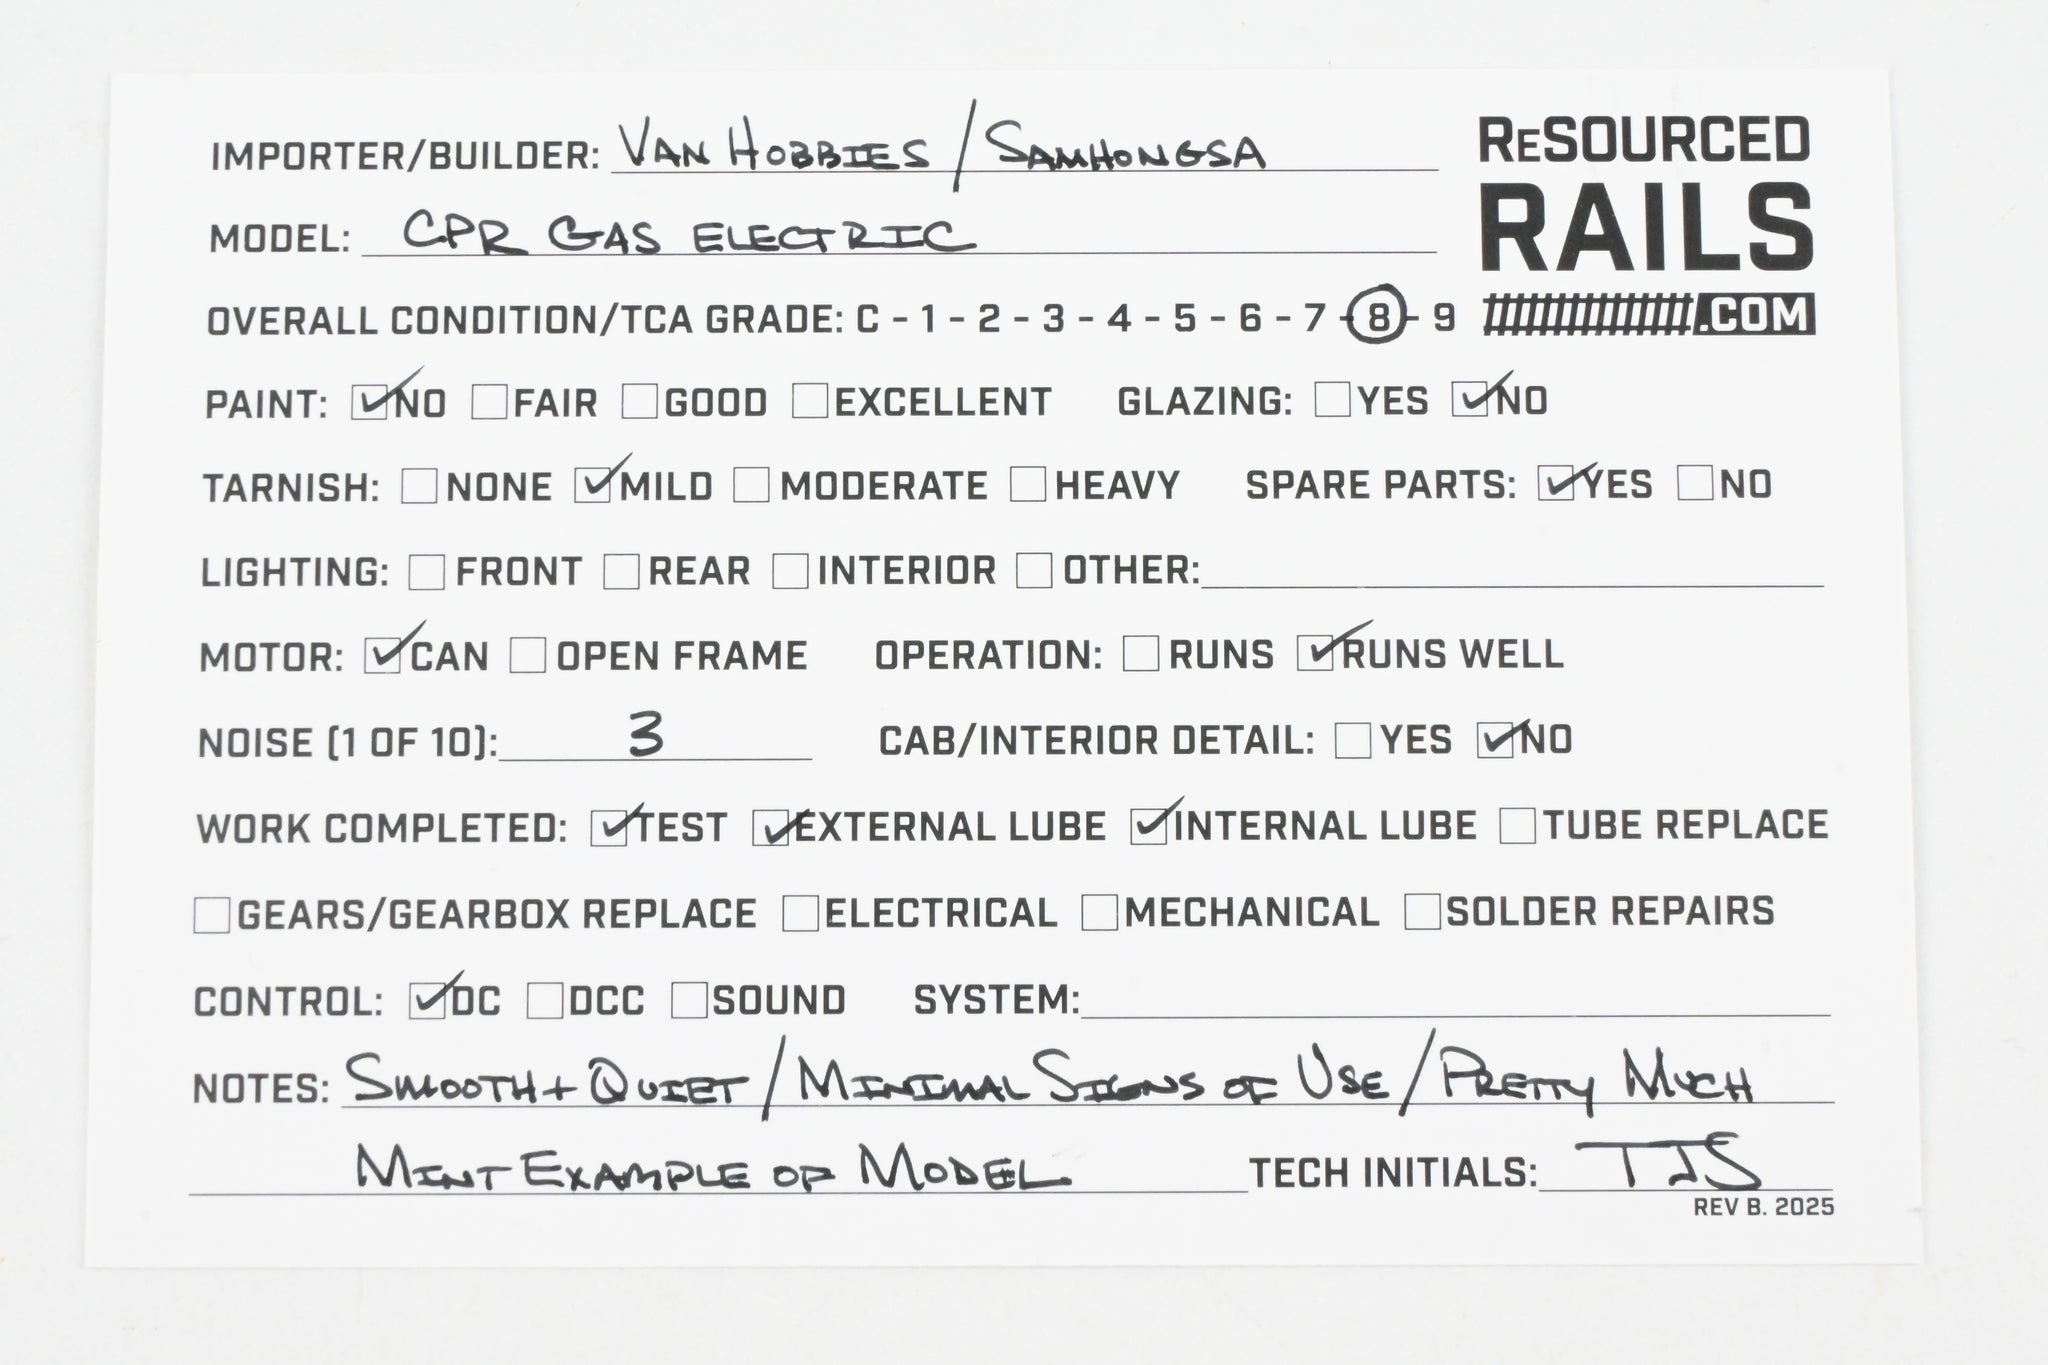 IMPORTER/BUILDER: VAN HOBBIES / SAMHONGSA
ReSOURCED
RAILS
.COM
MODEL: CPR GAS ELECTRIC
OVERALL CONDITION/TCA GRADE: C - 1 - 2 - 3 - 4 - 5 - 6 - 7 - 8 - 9
PAINT: ☑NO ☐FAIR ☐GOOD ☐EXCELLENT GLAZING: ☐YES ☑NO
TARNISH: ☐NONE ☑MILD ☐MODERATE ☐HEAVY SPARE PARTS: ☑YES ☐NO
LIGHTING: ☐FRONT ☐REAR ☐INTERIOR ☐OTHER:
MOTOR: ☑CAN ☐OPEN FRAME OPERATION: ☐RUNS ☑RUNS WELL
NOISE (1 OF 10): 3 CAB/INTERIOR DETAIL: ☐YES ☑NO
WORK COMPLETED: ☑TEST ☑EXTERNAL LUBE ☑INTERNAL LUBE ☐TUBE REPLACE
☐GEARS/GEARBOX REPLACE ☐ELECTRICAL ☐MECHANICAL ☐SOLDER REPAIRS
CONTROL: ☑DC ☐DCC ☐SOUND SYSTEM:
NOTES: SMOOTH + QUIET / MINIMAL SIGNS OF USE / PRETTY MUCH
MINT EXAMPLE OF MODEL TECH INITIALS: TJS
REV B. 2025